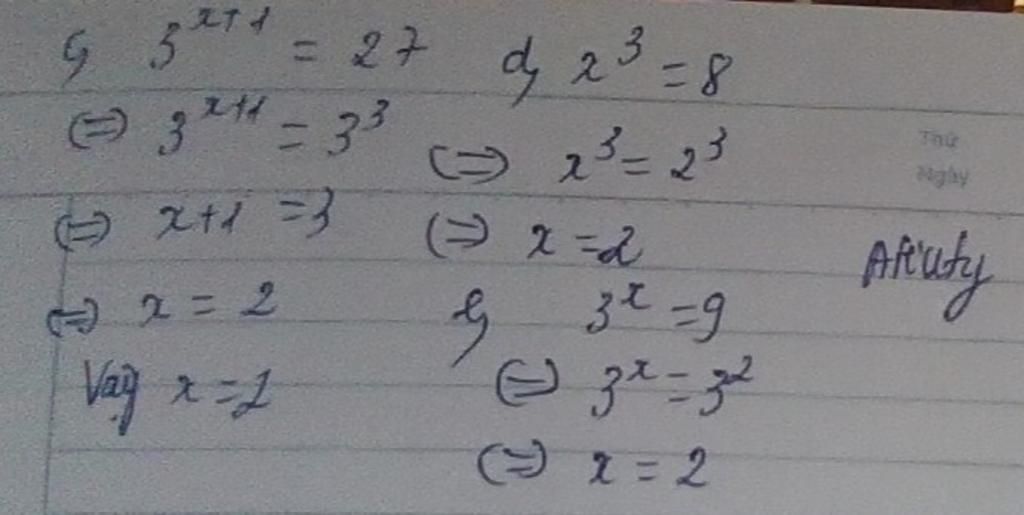 c, 3^{x+1} = 27
⇔ 3^{x+1} = 3^3
⇔ x+1 = 3
⇔ x = 2
Vậy x = 2
d, x^3 = 8
⇔ x^3 = 2^3
⇔ x = 2
e, 3^x = 9
⇔ 3^x = 3^2
⇔ x = 2
Thứ
Ngày